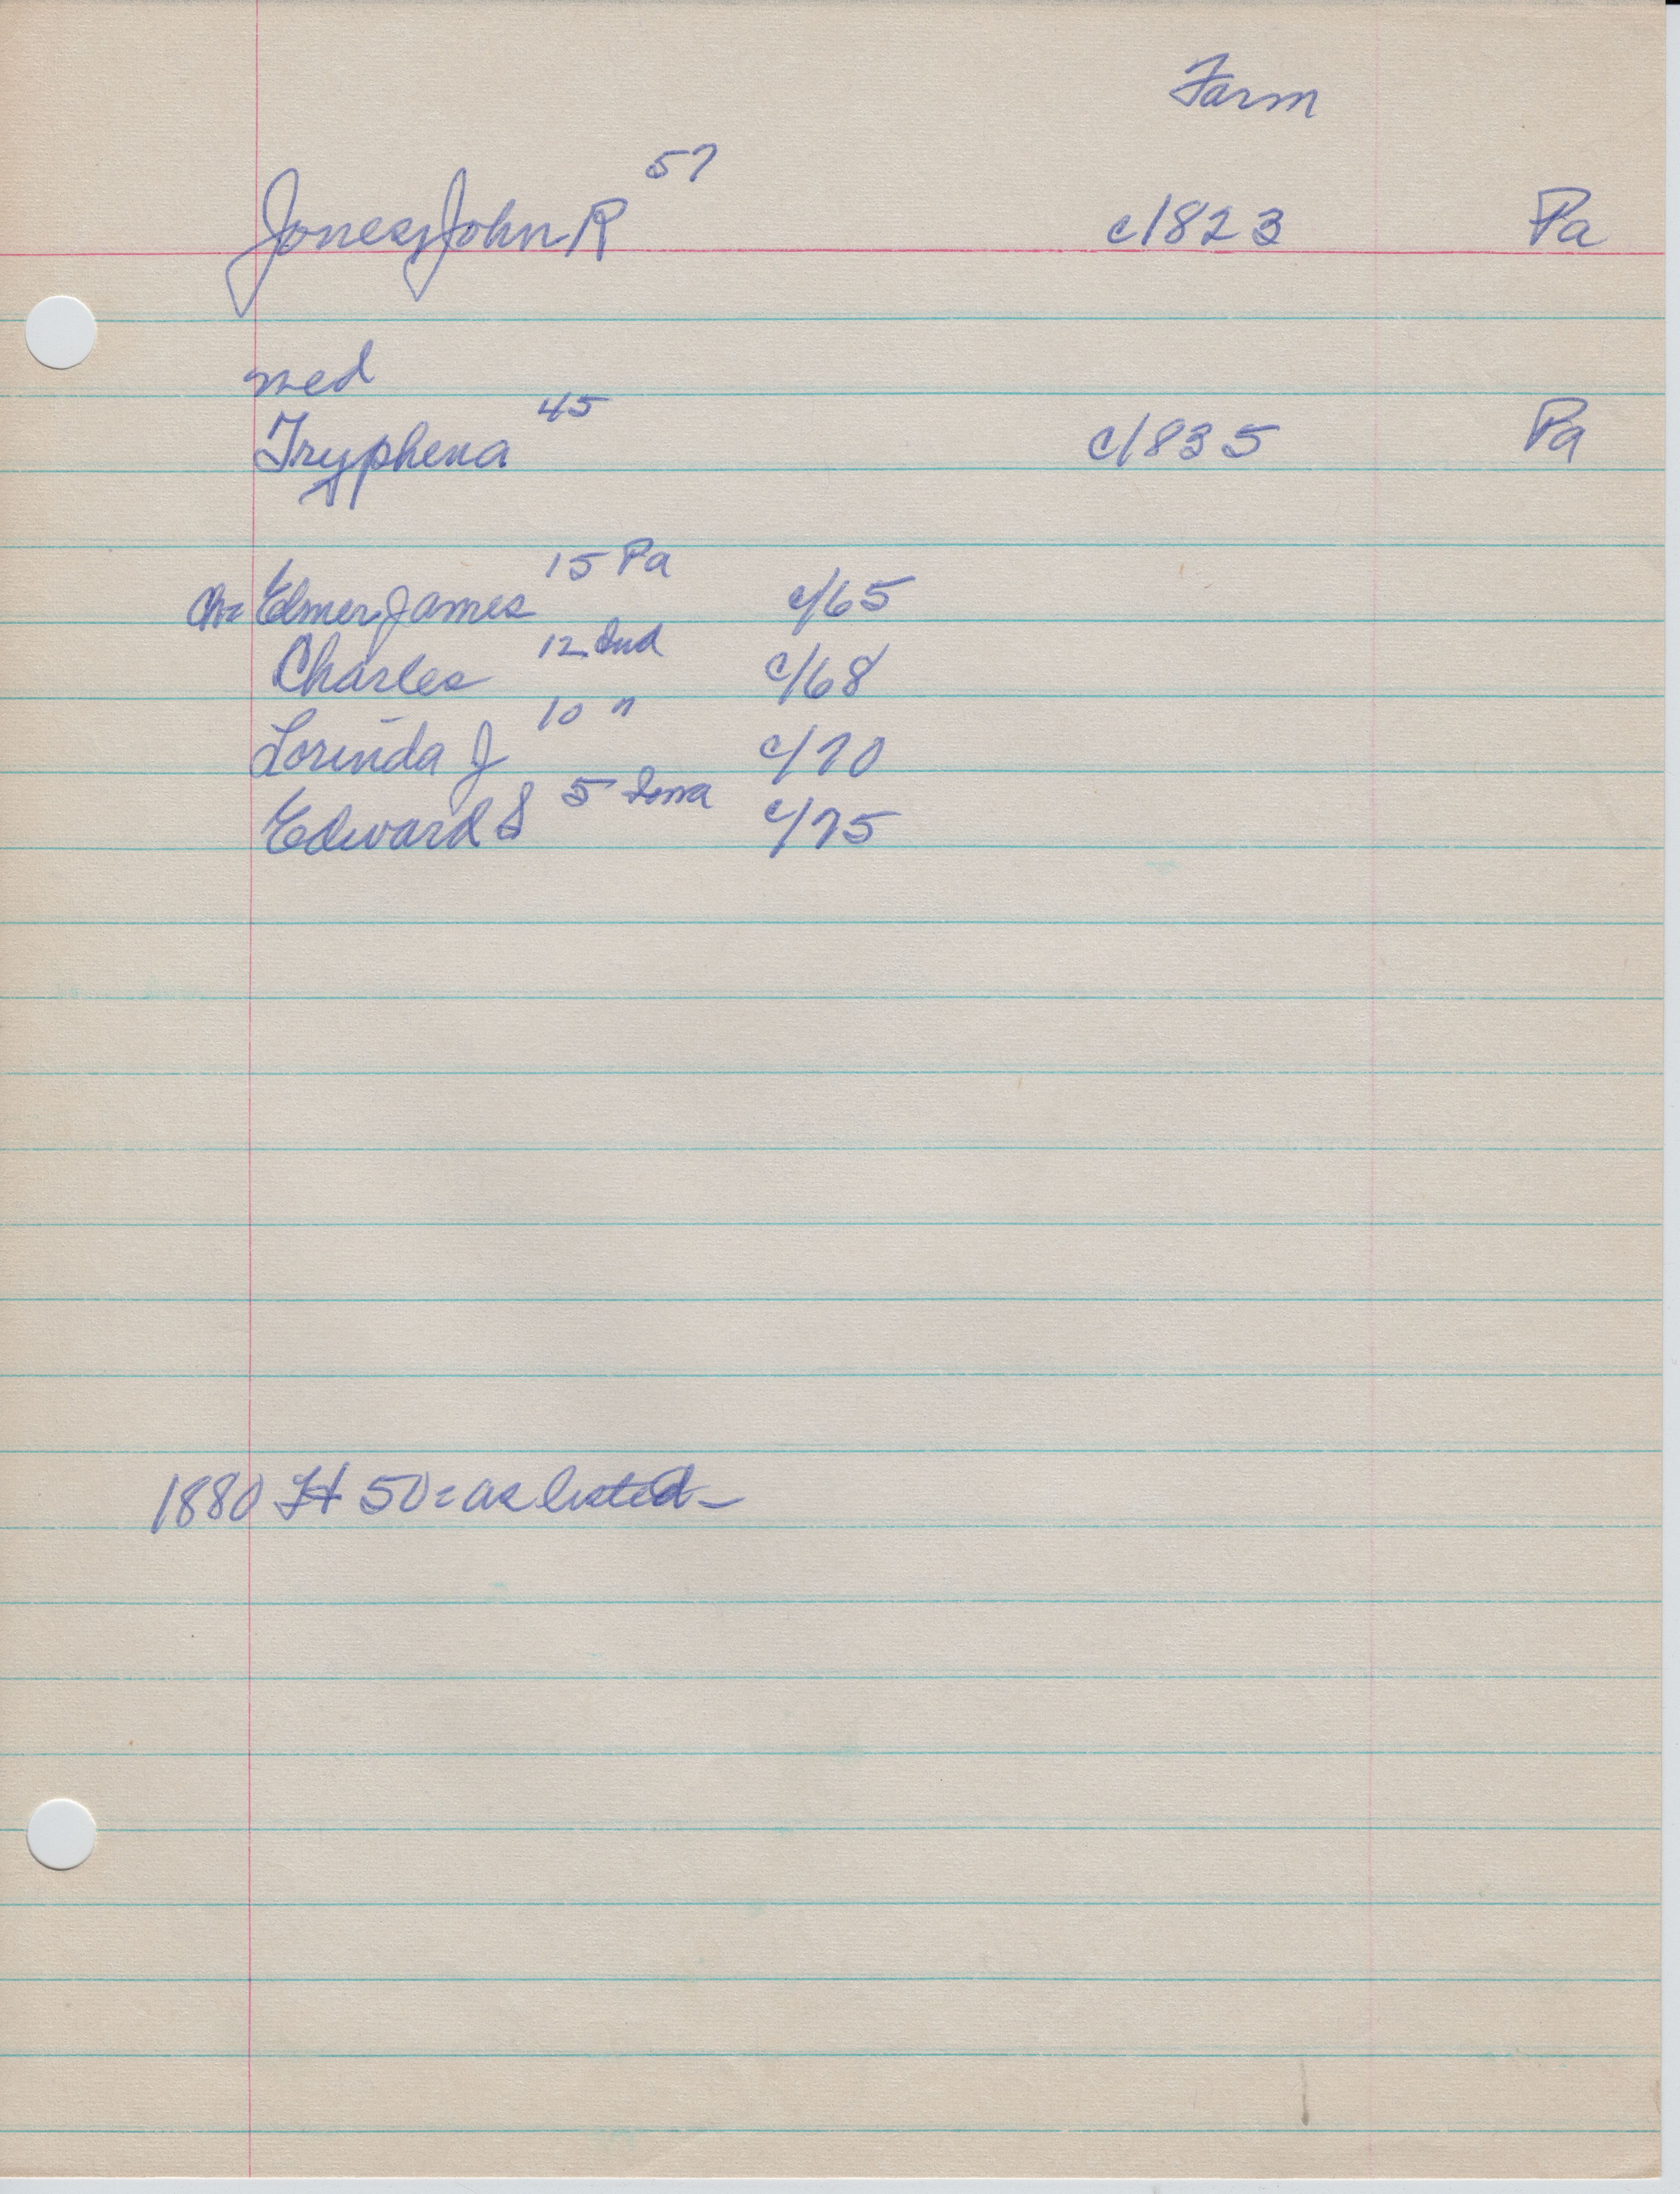 Farm
57
Jones, John R c/823 Pa
med
45
Tryphena c/835 Pa
15 Pa
Ch= Elmer James c/65
12 Ind
Charles c/68
10 "
Lorinda J c/70
5 Iowa
Edward S c/75
1880 50= as listed-